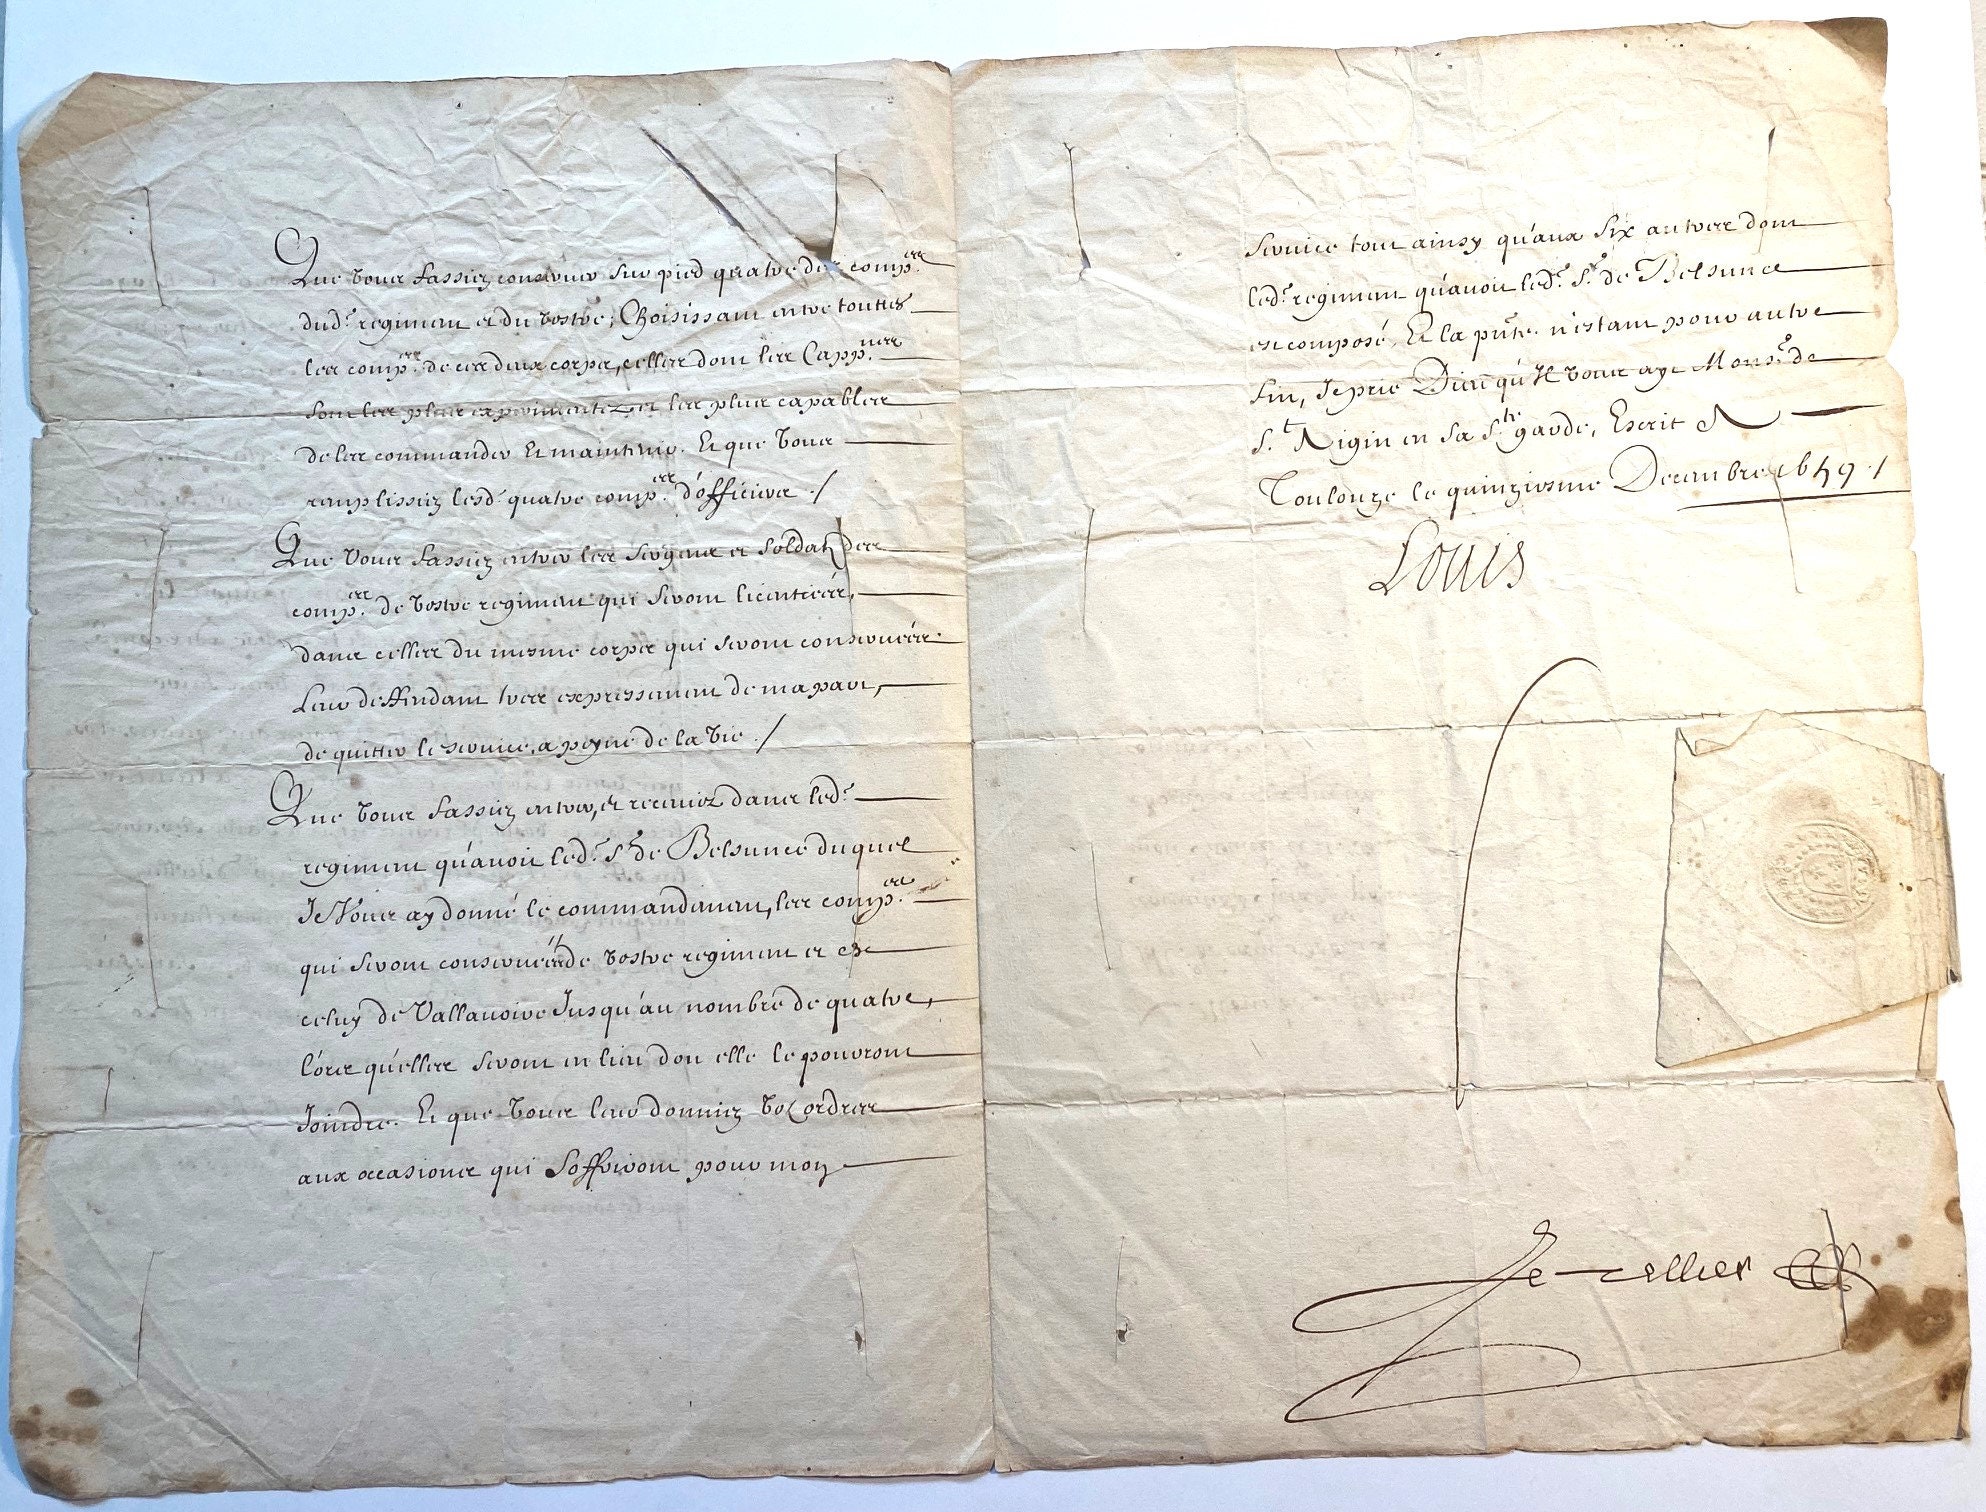 Que Vous fassiez conseruer sur pied quatre des comp.es
dud.t regiment et du vostre; Choisissant entre touttes
les comp.es de ces deux corps, celles dont les Capp.nes
sont les plus experimentez et les plus capables
de les commander et maintenir. Et que Vous
remplissiez lesd.t quatre comp.es d'officiers ./
Que Vous fassiez entrer les sergens et soldatz des
comp.es de vostre regiment qui seront licentiées,
dans celles du mesme corps qui seront conseruées.
Leur deffendant tres expressement de ma part,
de quitter le seruice, a peyne de la vie ./
Que Vous fassiez entrer, et receuiez dans led.t
regiment qu'auoit led.t S.r de Belsunce duquel
Je Vous ay donné le commandement, les comp.es
qui seront conseruées de vostre regiment et de
celuy de Vallauoire Jusqu'au nombre de quatre,
lors qu'elles seront en lieu d'ou elle le pouront
Joindre. Et que Vous leur donniez voz ordres
aux occasions qui s'offriront pour mon
seruice tout ainsy qu'aux six autres dont
led.t regiment qu'auoit led.t S.r de Belsunce
est composé. Et la pñte n'estant pour autre
fin, Je prie Dieu qu'Il vous ayt Mons.r de
S.t en sa S.te garde, Escrit A
Toulouze le quinziesme Decembre 1659 ./
Louis
Le Tellier